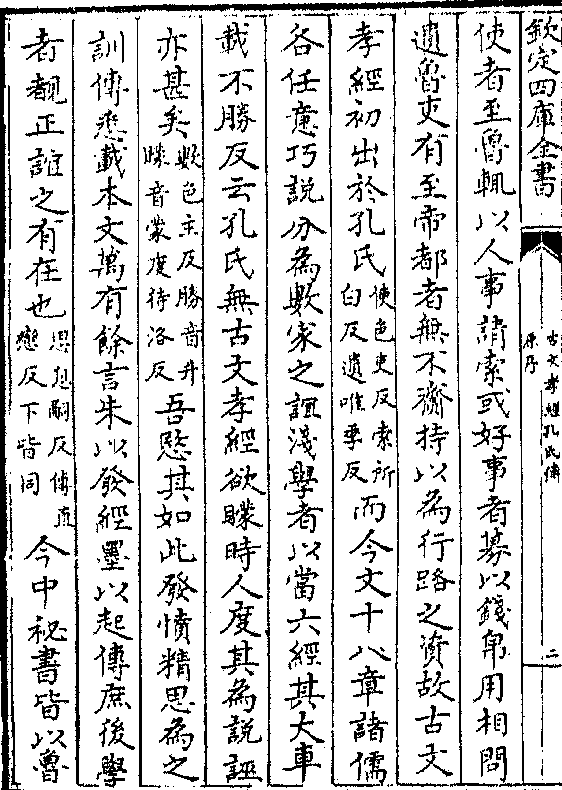 欽定四庫全書
古文孝經孔氏傳
原序
二
使者至魯輒以人事請索或好事者募以錢帛用相問
遺魯吏有至帝都者無不齎持以為行路之資故古文
孝經初出於孔氏使色吏反索所白反遺唯季反而今文十八章諸儒
各任意巧說分為數家之誼淺學者以當六經其大車
載不勝反云孔氏無古文孝經欲矇時人度其為說誣
亦甚矣數色主反勝音升矇音蒙度待洛反吾愍其如此發憤精思為之
訓傳悉載本文萬有餘言朱以發經墨以起傳庶後學
者覩正誼之有在也思息嗣反傳直戀反下皆同今中秘書皆以魯